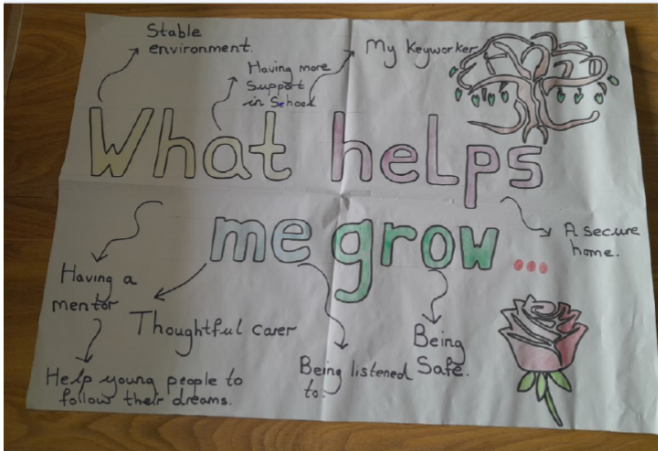 Stable
environment.
Having more
support
in School
My Keyworker
What helps
me grow...
A secure
home.
Having a
mentor
Thoughtful carer
Help young people to
follow their dreams.
Being listened
to.
Being
Safe.